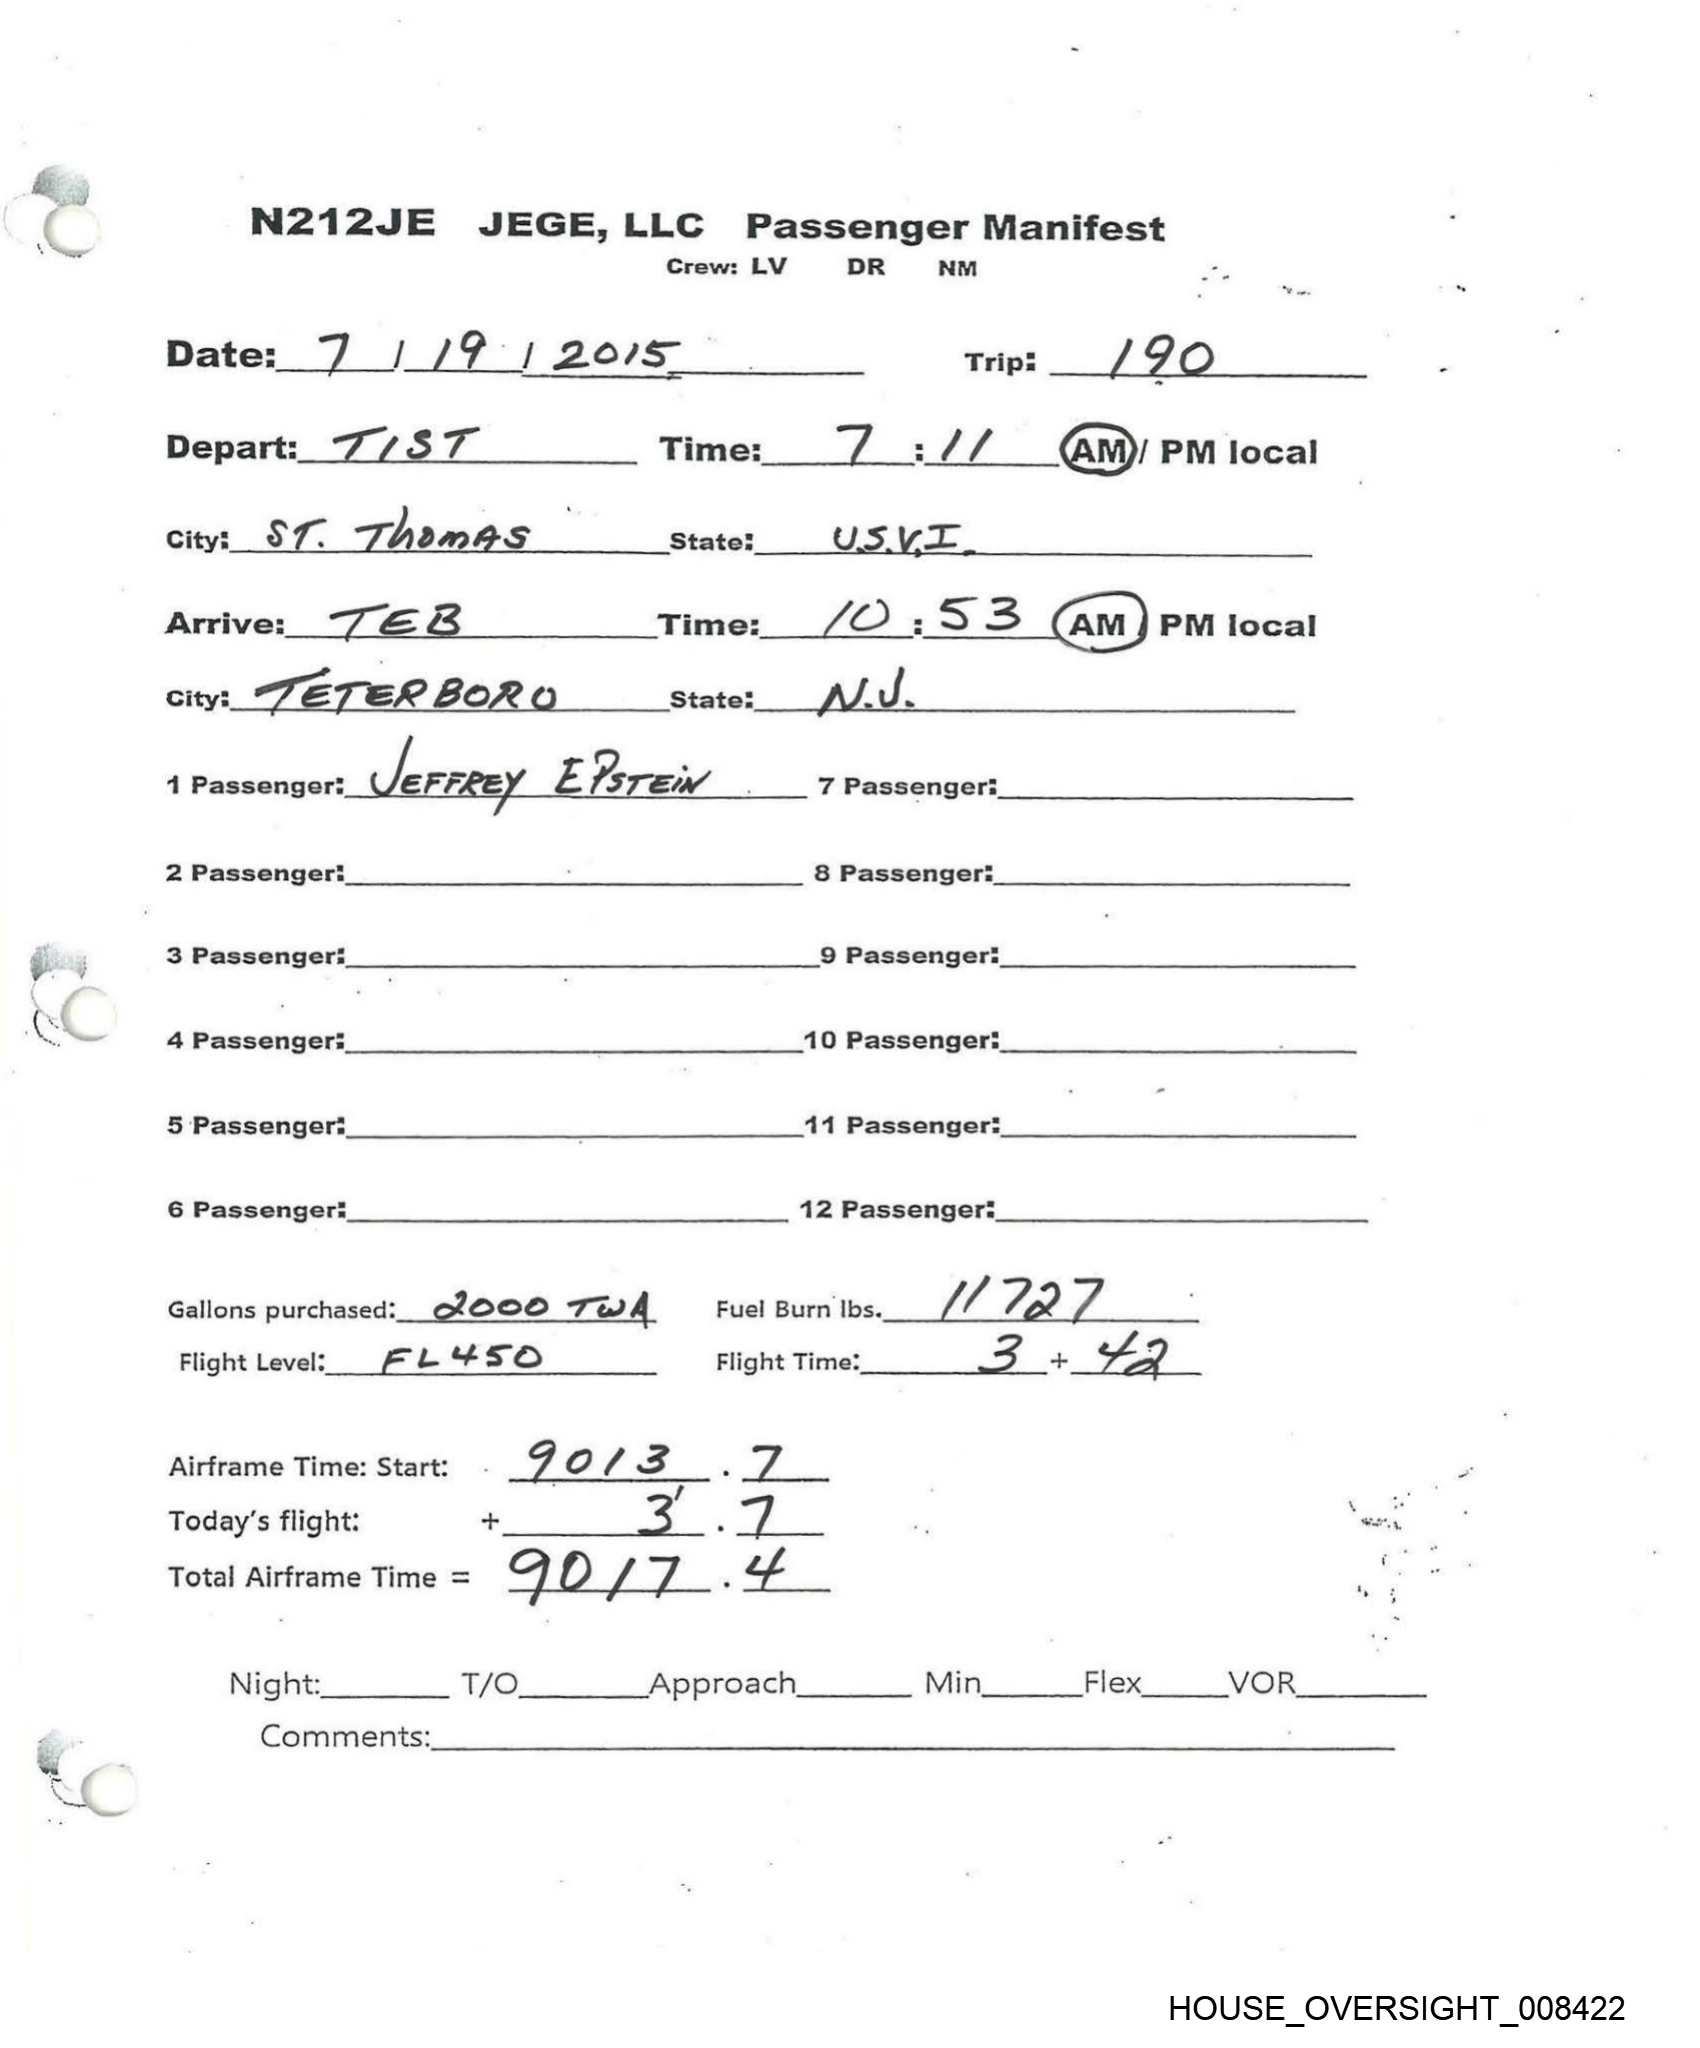 N212JE JEGE, LLC Passenger Manifest
Crew: LV DR NM
Date: 7 / 19 / 2015 Trip: 190
Depart: TIST Time: 7 : 11 AM / PM local
City: ST. Thomas State: U.S.V.I.
Arrive: TEB Time: 10 : 53 AM / PM local
City: TETERBORO State: N.J.
1 Passenger: JEFFREY EPSTEIN 7 Passenger:
2 Passenger: 8 Passenger:
3 Passenger: 9 Passenger:
4 Passenger: 10 Passenger:
5 Passenger: 11 Passenger:
6 Passenger: 12 Passenger:
Gallons purchased: 2000 TWA Fuel Burn lbs. 11727
Flight Level: FL450 Flight Time: 3 + 42
Airframe Time: Start: 9013 . 7
Today's flight: + 3 . 7
Total Airframe Time = 9017 . 4
Night: T/O Approach Min Flex VOR
Comments:
HOUSE_OVERSIGHT_008422